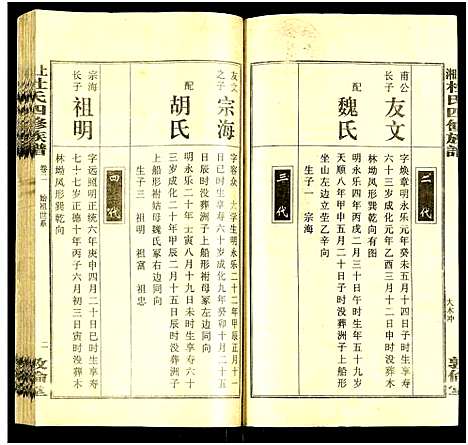 湘
杜氏四修族谱
大木冲
敦伦堂
二代
甫公
长子
友文
字焕章明永乐元年癸未五月十四日子时生享寿
六十三岁成化元年乙酉三月十二日子时没葬木
林坳凤形巽乾向有图
配
魏氏
明永乐二年丙戌二月三十日午时生享寿五十三岁
天顺八年甲申五月二十日子时没葬洲子上船形
坐山左边立垄乙辛向
生子一 宗海
三代
友文
之子
宗海
字容众 大学生明永乐二十二年甲辰正月十一
日辰时生享寿六十岁成化九年癸卯十月二十
六日时没葬洲子上船形祔母冢左边同向
配
胡氏
明永乐二十年壬寅八月十九日寅时生享寿六十
三岁成化二十年甲辰二月十五日辰时没葬洲子
上船形祔姑魏氏冢右边同向
生子三 祖明 祖富 祖忠
四代
宗海
长子
祖明
字远照明正统六年庚申四月二十日巳时生享寿
七十七岁正德十年丙子六月初三日寅时没葬木
林坳凤形巽乾向
上
杜氏四修族谱
卷二 始祖世系
二
敦伦堂